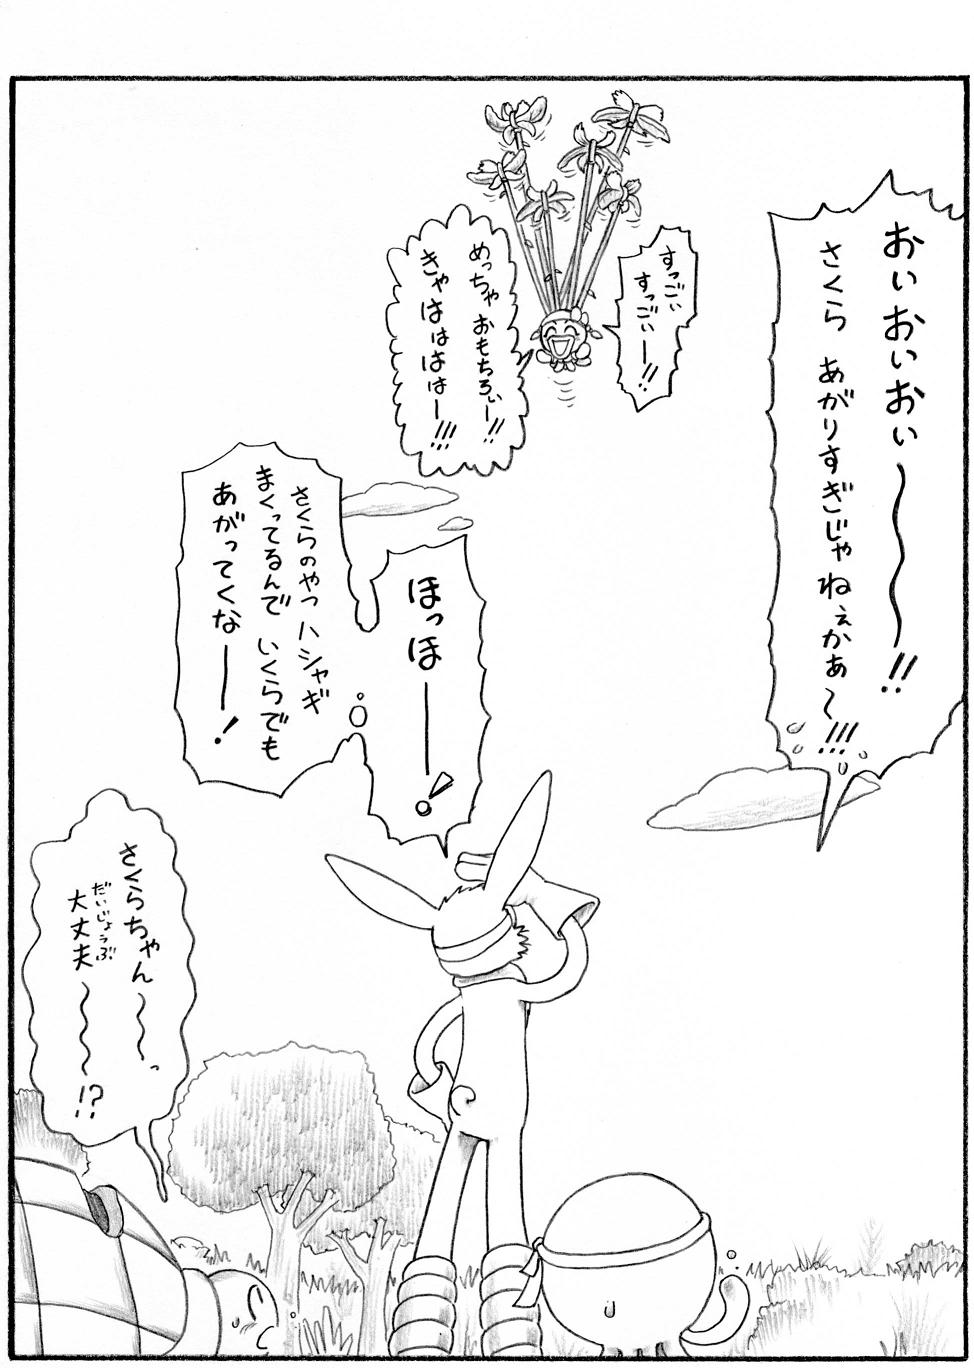 おぃおぃおぃ〜〜〜!!
さくら あがりすぎじゃねぇかぁ〜!!!
すっごぃ
すっごぃー!!
めっちゃ おもちろぃー!!
きゃはははは ー!!!
ほっほーー!
さくらのやつ ハシャギ
まくってるんで いくらでも
あがってくなーー!
さくらちゃん〜〜っ
だいじょうぶ
大丈夫〜〜〜!?